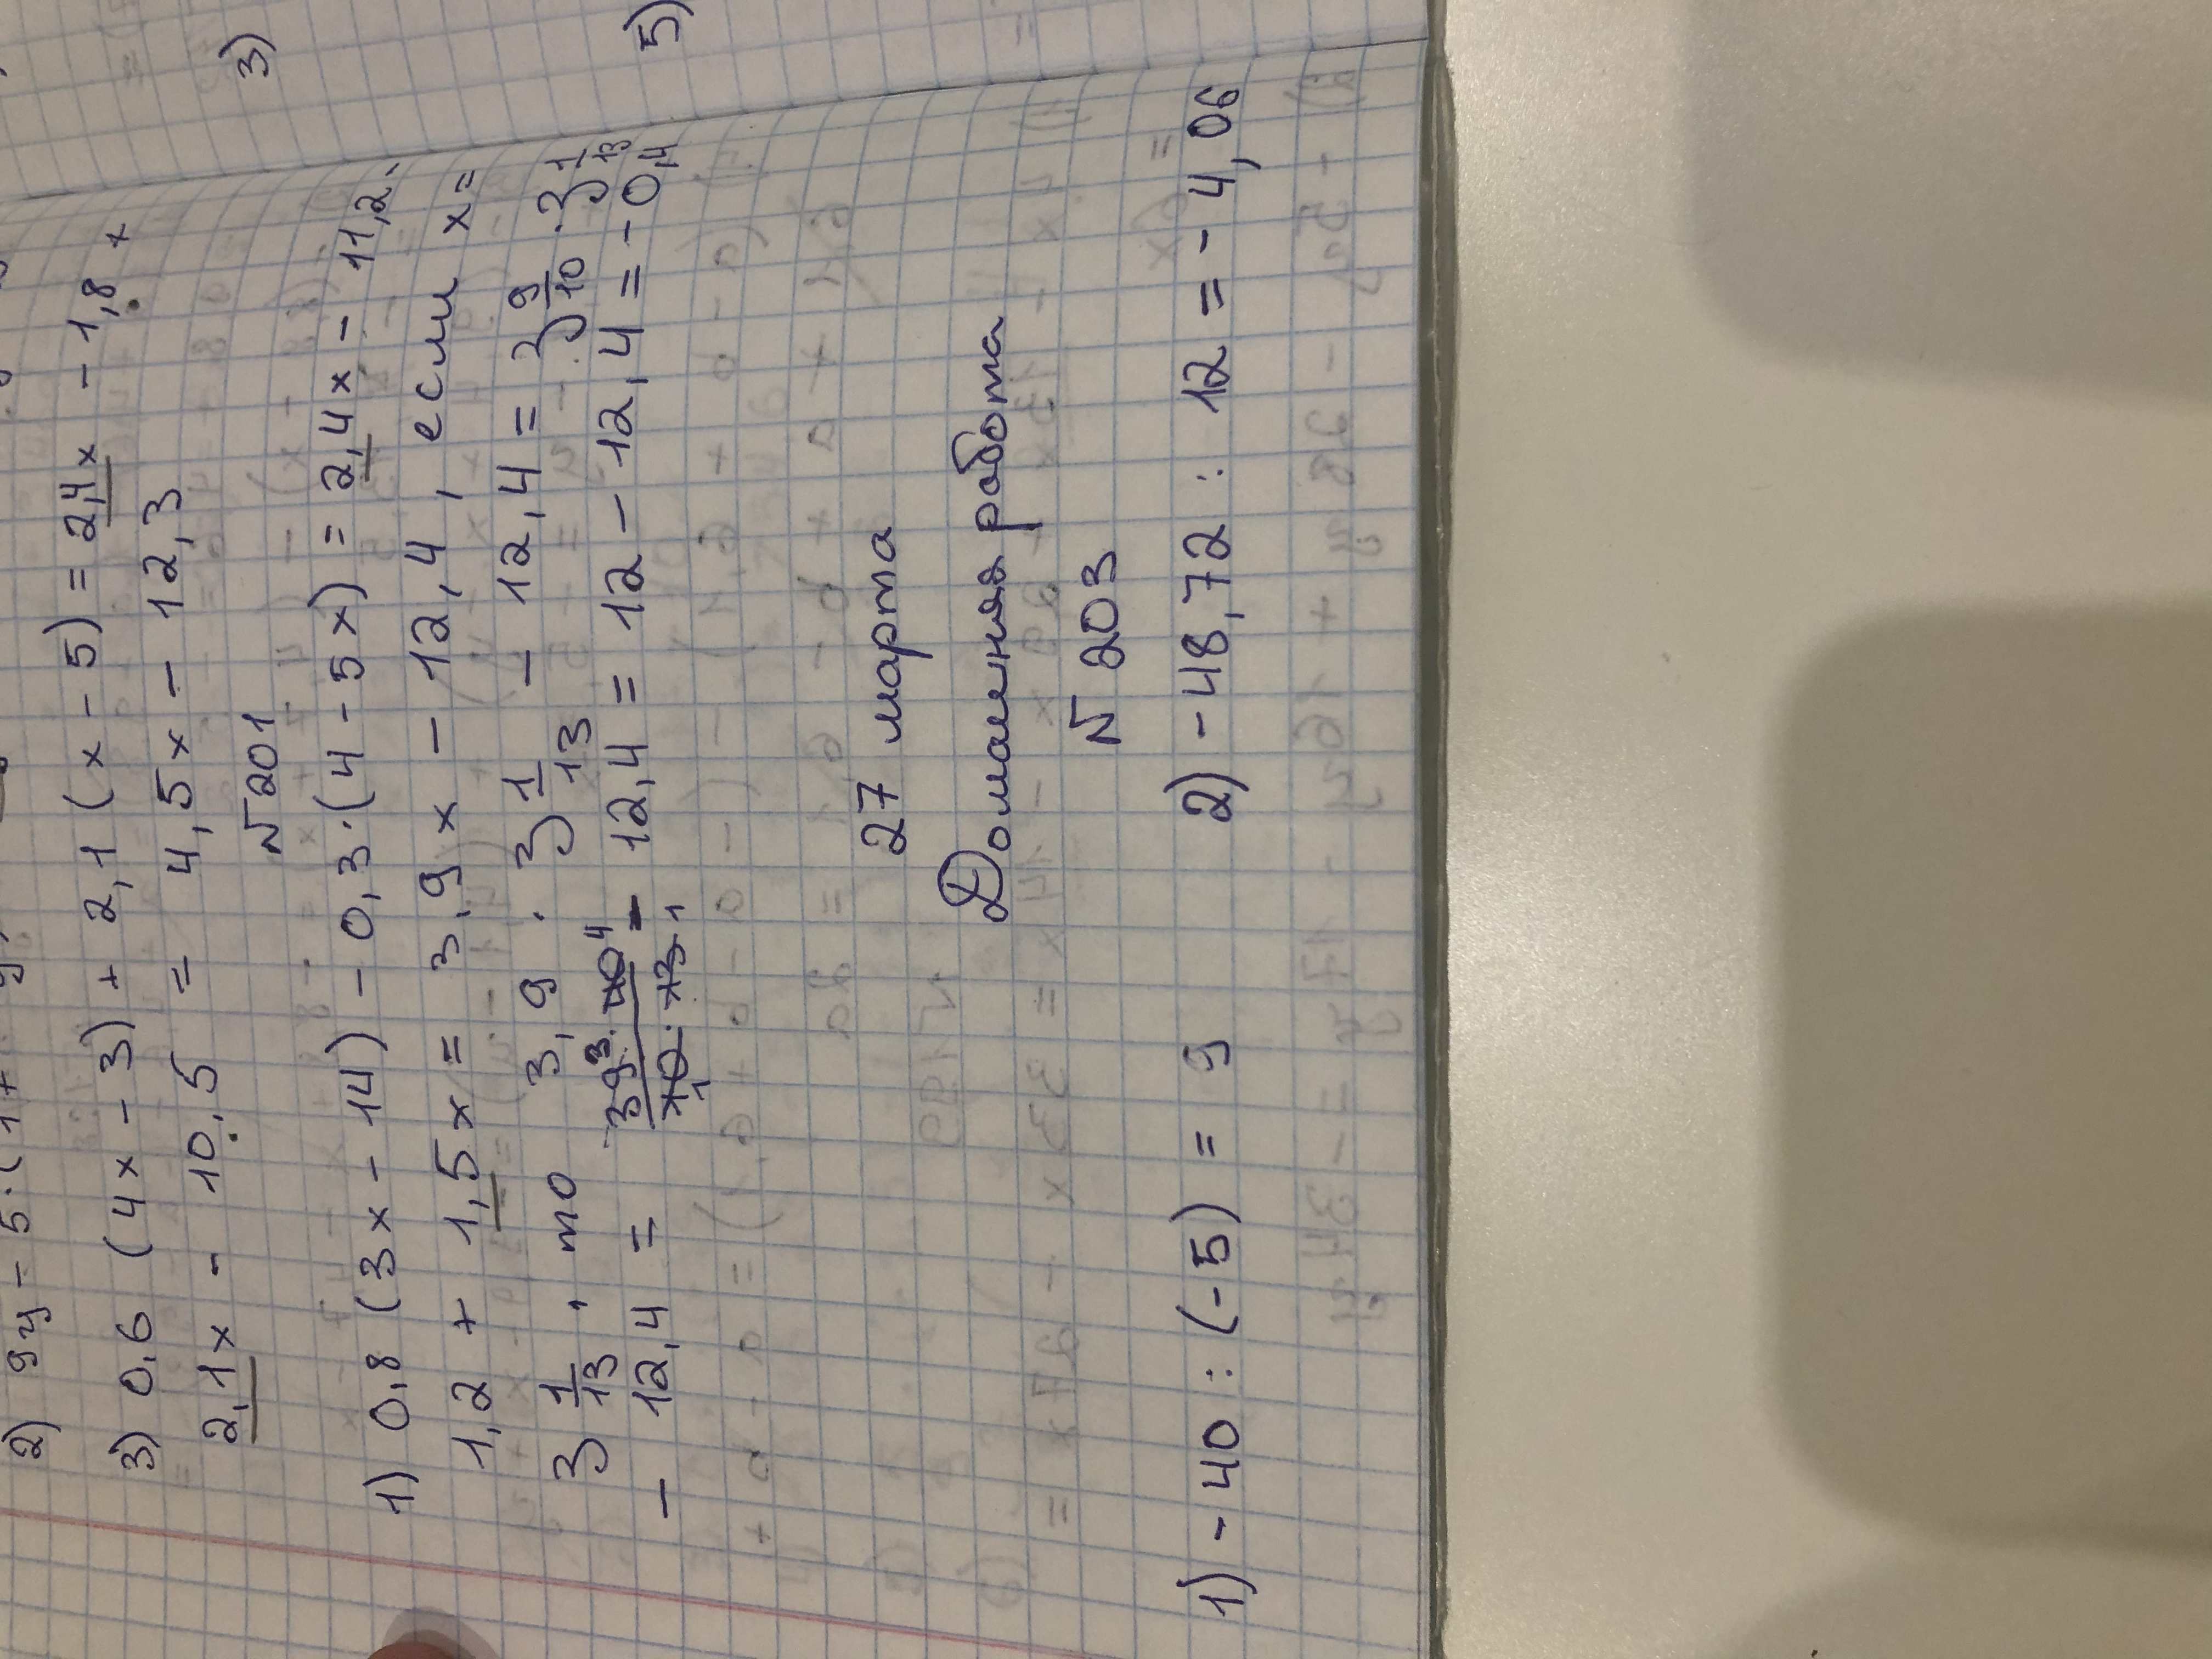 2) 9y - 5 · (1 +
3) 0,6 (4x - 3) + 2,1 (x - 5) = 2,4x - 1,8 +
2,1x - 10,5 = 4,5x - 12,3
N 201
1) 0,8 (3x - 14) - 0,3 · (4 - 5x) = 2,4x - 11,2 -
1,2 + 1,5x = 3,9x - 12,4, если x =
3 1/13, то 3,9 · 3 1/13 - 12,4 = 3 9/10 · 3 1/13
- 12,4 = 39 3 · 40 4 / 10 1 · 13 1 - 12,4 = 12 - 12,4 = -0,4
27 марта
Домашняя работа
N 203
1) -40 : (-5) = 9 2) -48,72 : 12 = -4,06
3)
5)